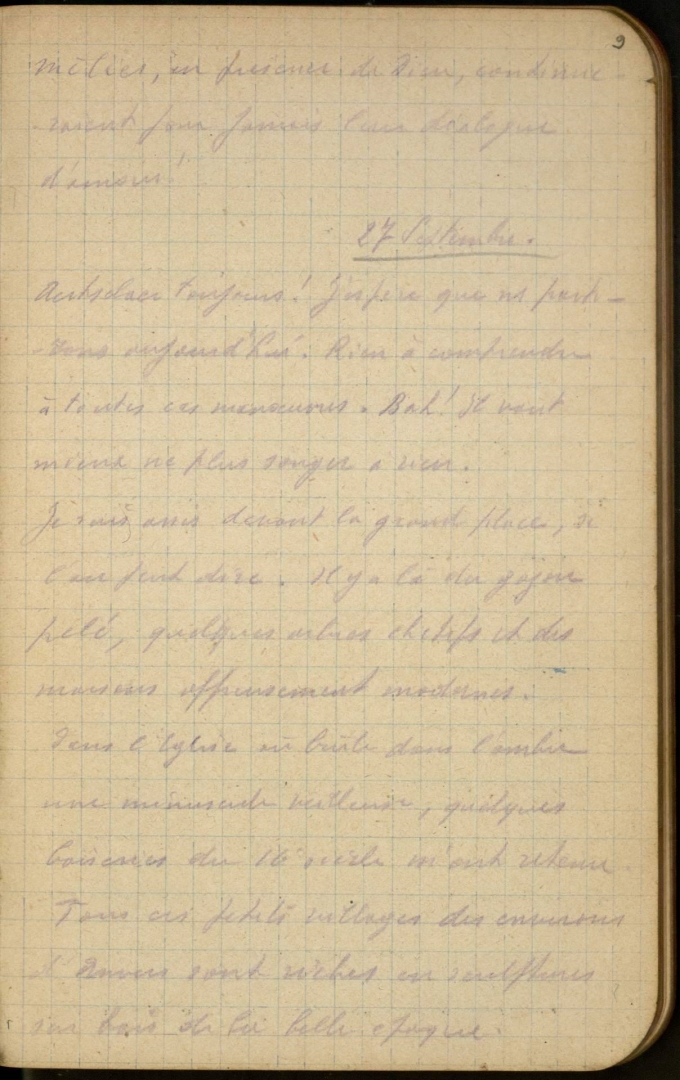 9
mêlées, en présence de Dieu, continue-
-raient pour jamais leur dialogue
d'amour!
27 Septembre.
toujours! J'espère que ns parti-
-rons aujourd'hui. Rien à comprendre
à toutes ces manœuvres. Bah! Il vaut
mieux ne plus songer à rien.
Je suis assis devant la grand place, si
l'on peut dire. Il y a là du gazon
pelé, quelques arbres chétifs et des
maisons affreusement modernes.
Dans l'Eglise où brûle dans l'ombre
une minuscule veilleuse, quelques
boiseries du 16 siècle m'ont retenu
Tous ces petits villages des environs
d'Anvers sont riches en sculptures
sur bois de la belle époque.